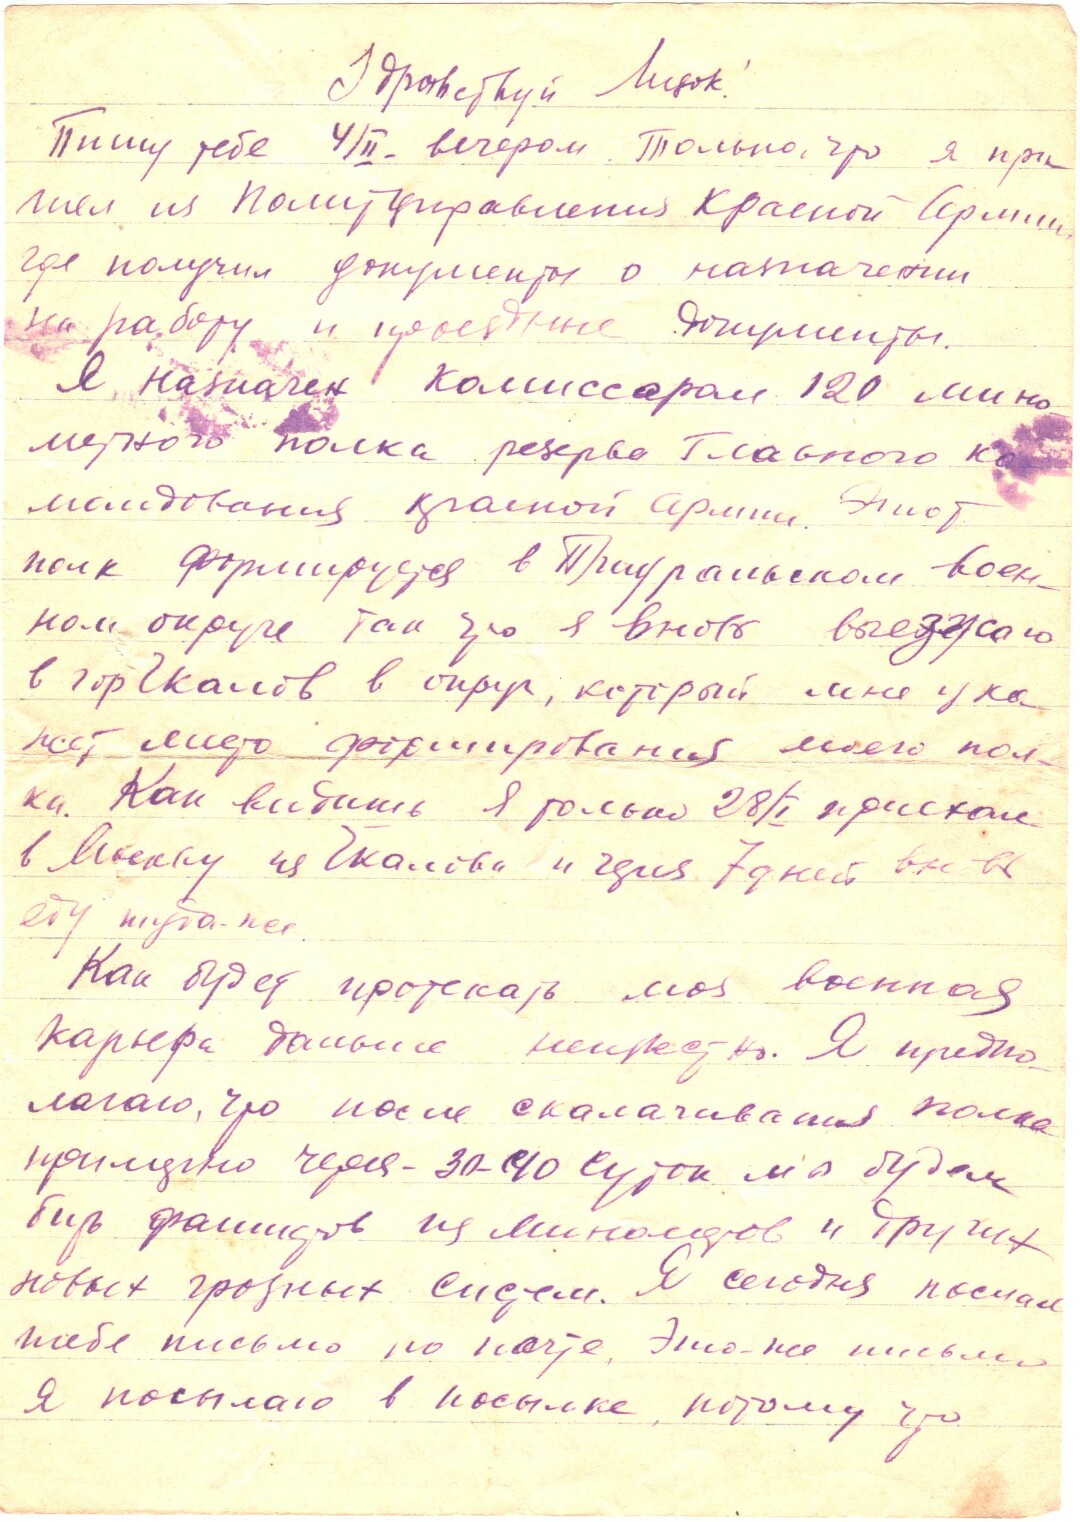 Здравствуй Лидок!
Пишу тебе 4/II- вечером. Только, что я при-
шел из Политуправления Красной Армии,
где получил документы о назначении
на работу и проездные документы.
Я назначен комиссаром 120 мино-
метного полка резерва Главного ко-
мандования Красной Армии. Этот
полк формируется в Приуральском воен-
ном округе так что я вновь выезжаю
в гор Чкалов в округ, который мне ука-
жет место формирования моего пол-
ка. Как видишь я только 28/I приехал
в Москву из Чкалова и через 7 дней вновь
еду туда-же.
Как будет протекать моя военная
карьера дальше неизвестно. Я предпо-
лагаю, что после сколачивания полка
примерно через- 30-40 суток мы будем
бить фашистов из минометов и других
новых грозных систем. Я сегодня послал
тебе письмо по почте. Это-же письмо
я посылаю в посылке, потому что